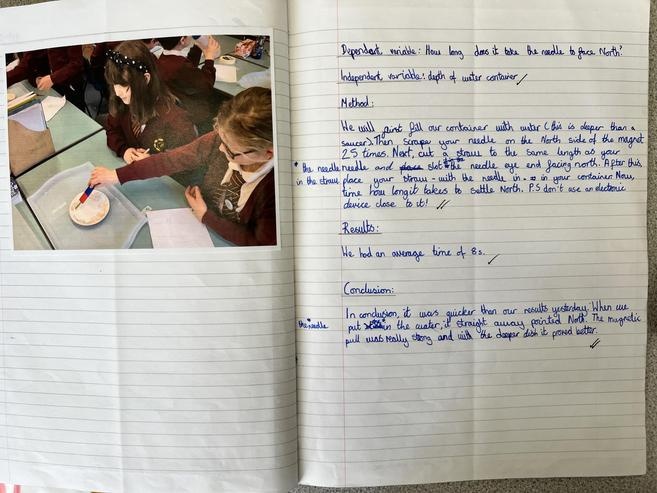 Dependant variable: How long does it take the needle to face North?
Independent variable: depth of water container
Method:
We will first fill our container with water (this is deeper than a
saucer). Then scrape your needle on the North side of the magnet
25 times. Next, cut a straw to the same length as your
* the needle needle and place slot * the needle eye end facing north. After this,
in the straw place your straw - with the needle in - in your container. Now,
time how long it takes to settle North. P.S don't use an electronic
device close to it!
Results:
We had an average time of 8s.
Conclusion:
In conclusion, it was quicker than our results yesterday. When we
the needle put * in the water, it straight away pointed North. The magnetic
pull was really strong and with the deeper dish it proved better.